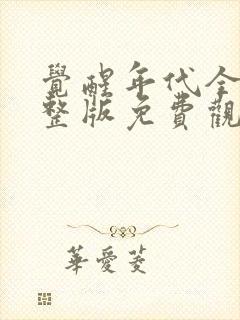 覺醒年代全
整版免費觀
華愛菱